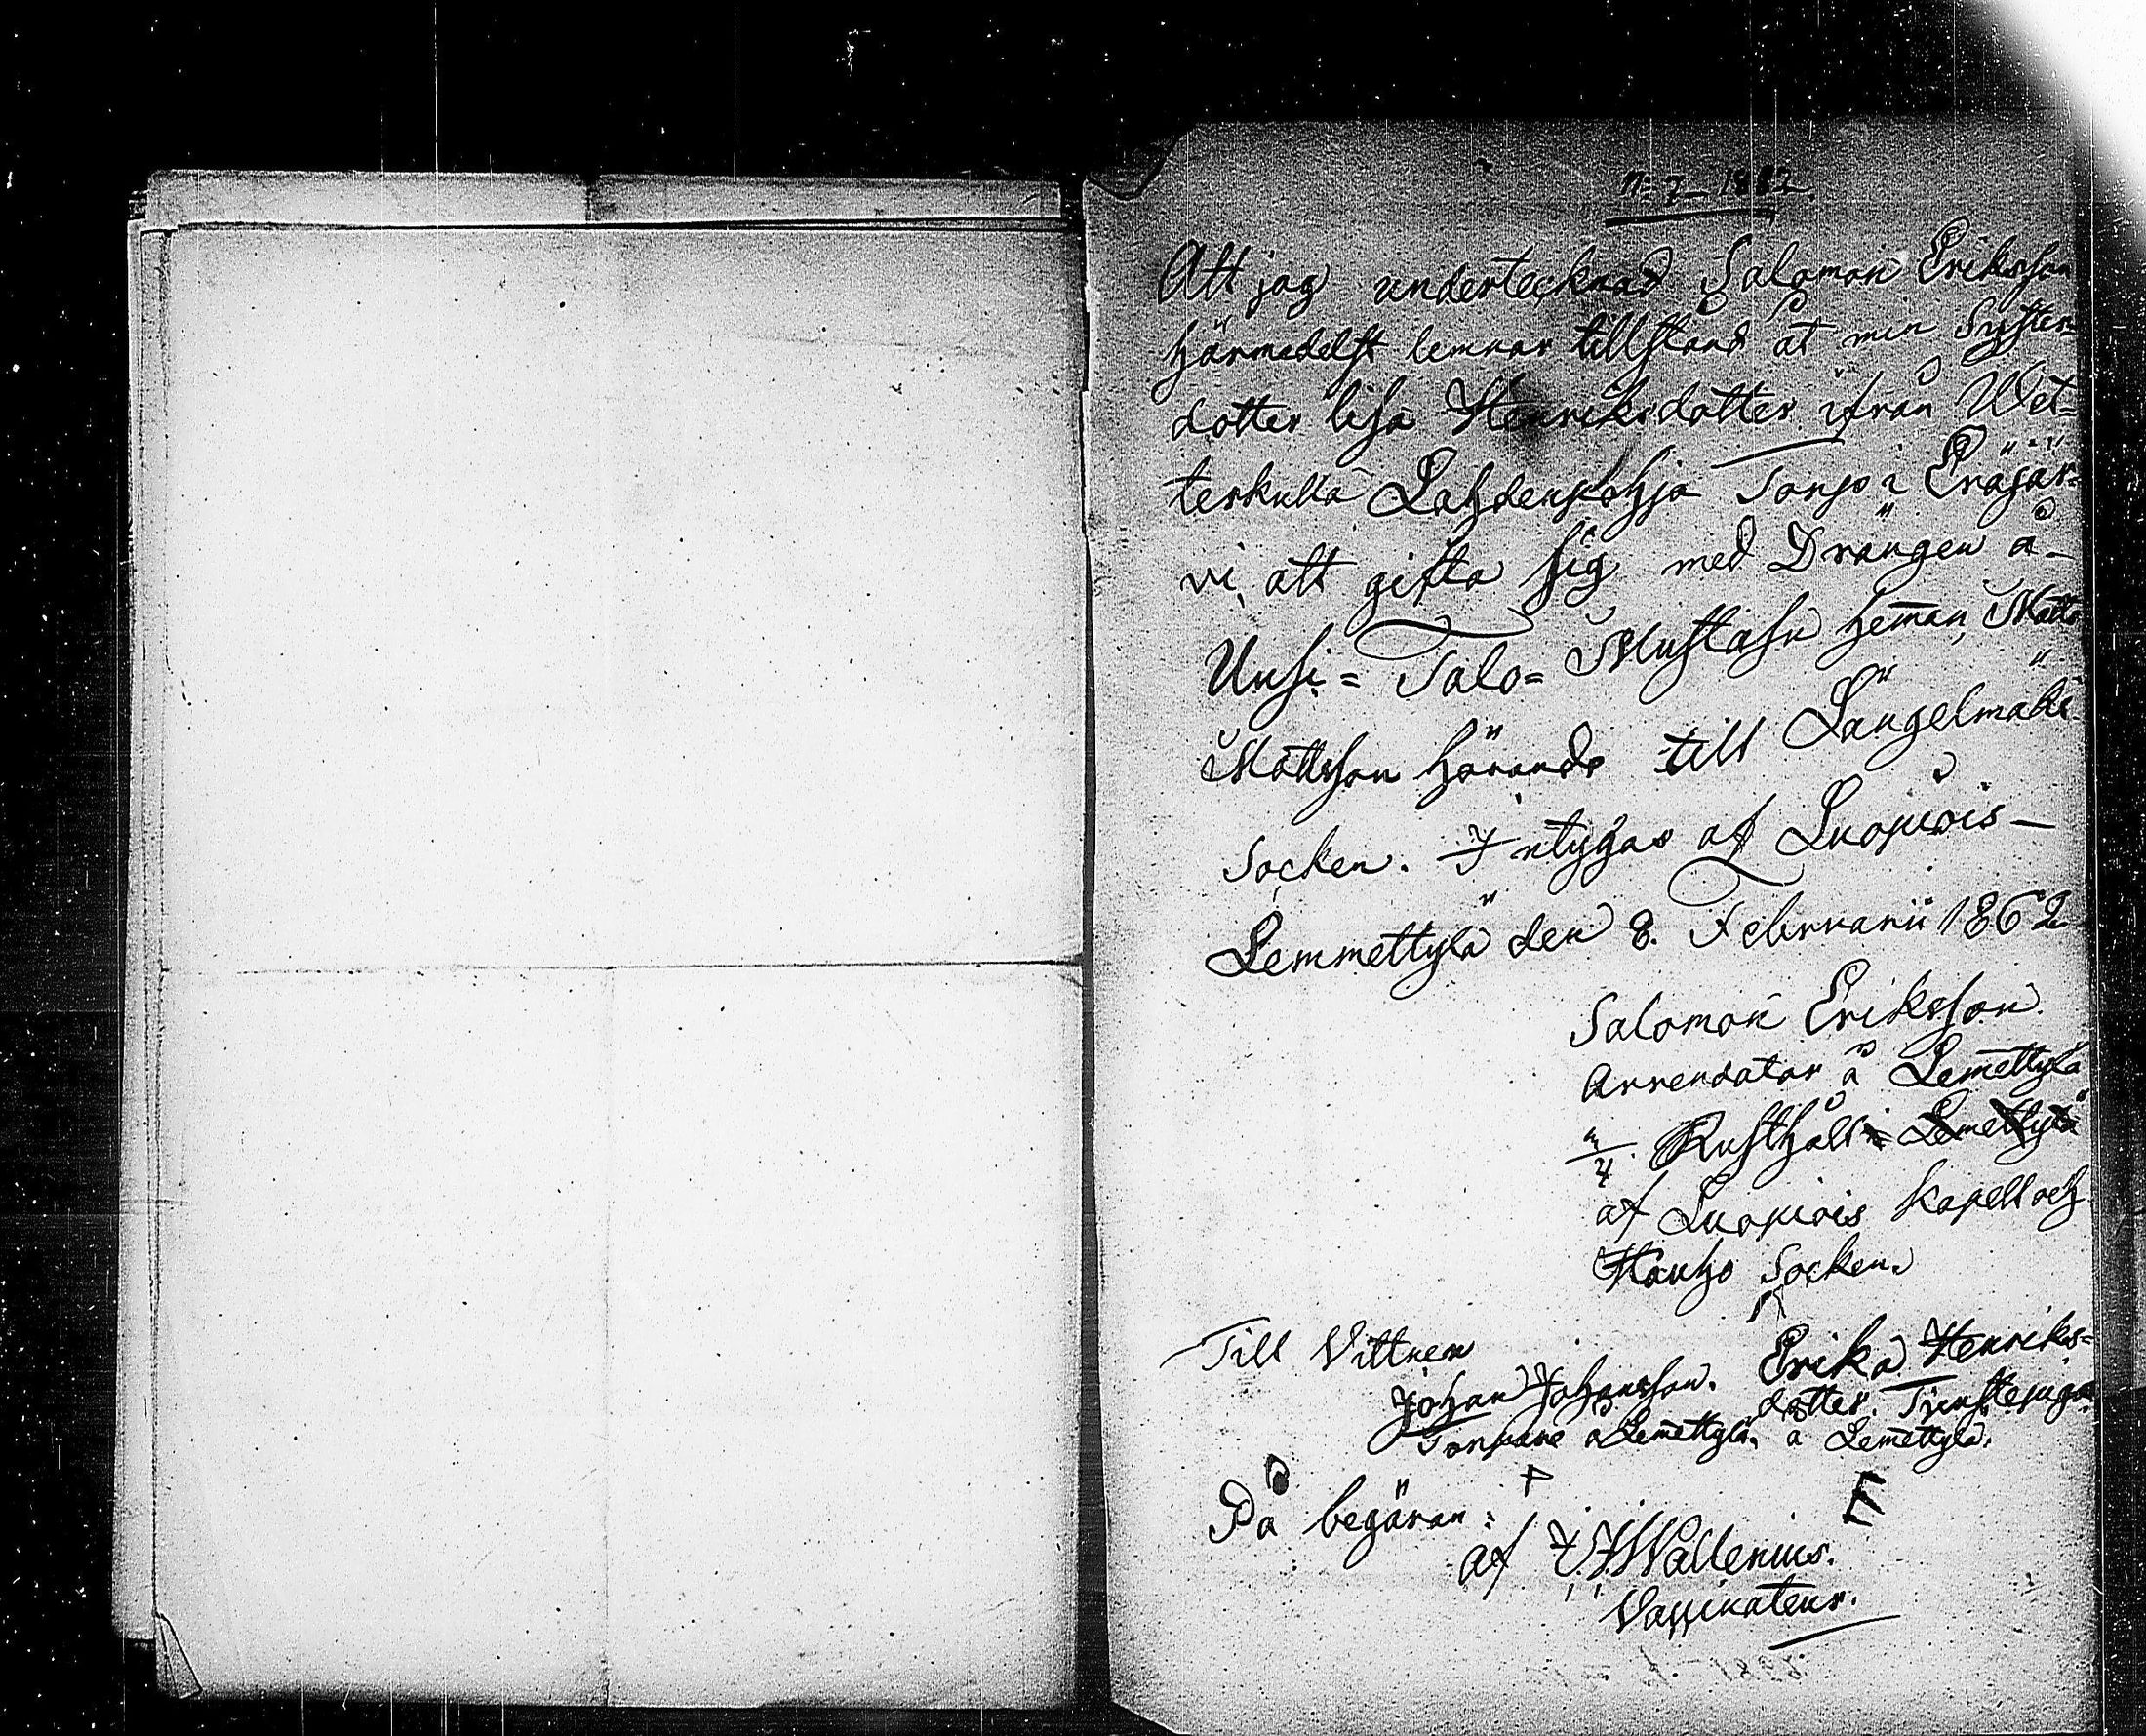 N:o 7 1862.
Att jag undertecknad Salomon Eriksson
härmedelst lemnar tillstånd åt min Syster-
dotter lisa Henriksdotter ifrån Wet=
terkulla Lahdenpohja Torp i Eräjär=
vi, att gifta sig med Drängen å-
Uusi= Talo= Mustasu heman, Matts
Mattsson hörande till Längelmäki
Socken. Intygas af Luopiois-
Lemmettylä den 8. Februarii 1862
Salomon Eriksson.
Arrendator å Lemettylä
Rusthåll
af Luopiois kapell och
Hauho Socken.
Till Vittnen
Johan Johansson. Erika Henriks=
dotter. Tjenstepiga
Torpare å Lemettylä, å Lemettylä.
På begäran:
E
af J. J. Wallenius.
Vaccinateur.